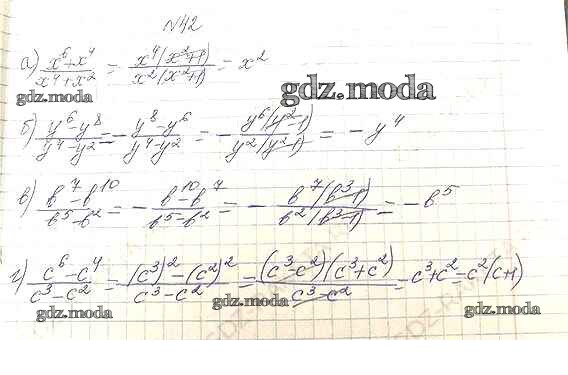 №42
а) x⁶+x⁴/x⁴+x² = x⁴(x²+1)/x²(x²+1) = x²
gdz.moda
gdz.moda
б) y⁶-y⁸/y⁴-y² = - y⁸-y⁶/y⁴-y² = - y⁶(y²-1)/y²(y²-1) = - y⁴
в) b⁷-b¹⁰/b⁵-b² = - b¹⁰-b⁷/b⁵-b² = - b⁷(b³-1)/b²(b³-1) = - b⁵
г) c⁶-c⁴/c³-c² = (c³)²-(c²)²/c³-c² = (c³-c²)(c³+c²)/c³-c² = c³+c² = c²(c+1)
gdz.moda
gdz.moda
gdz.moda